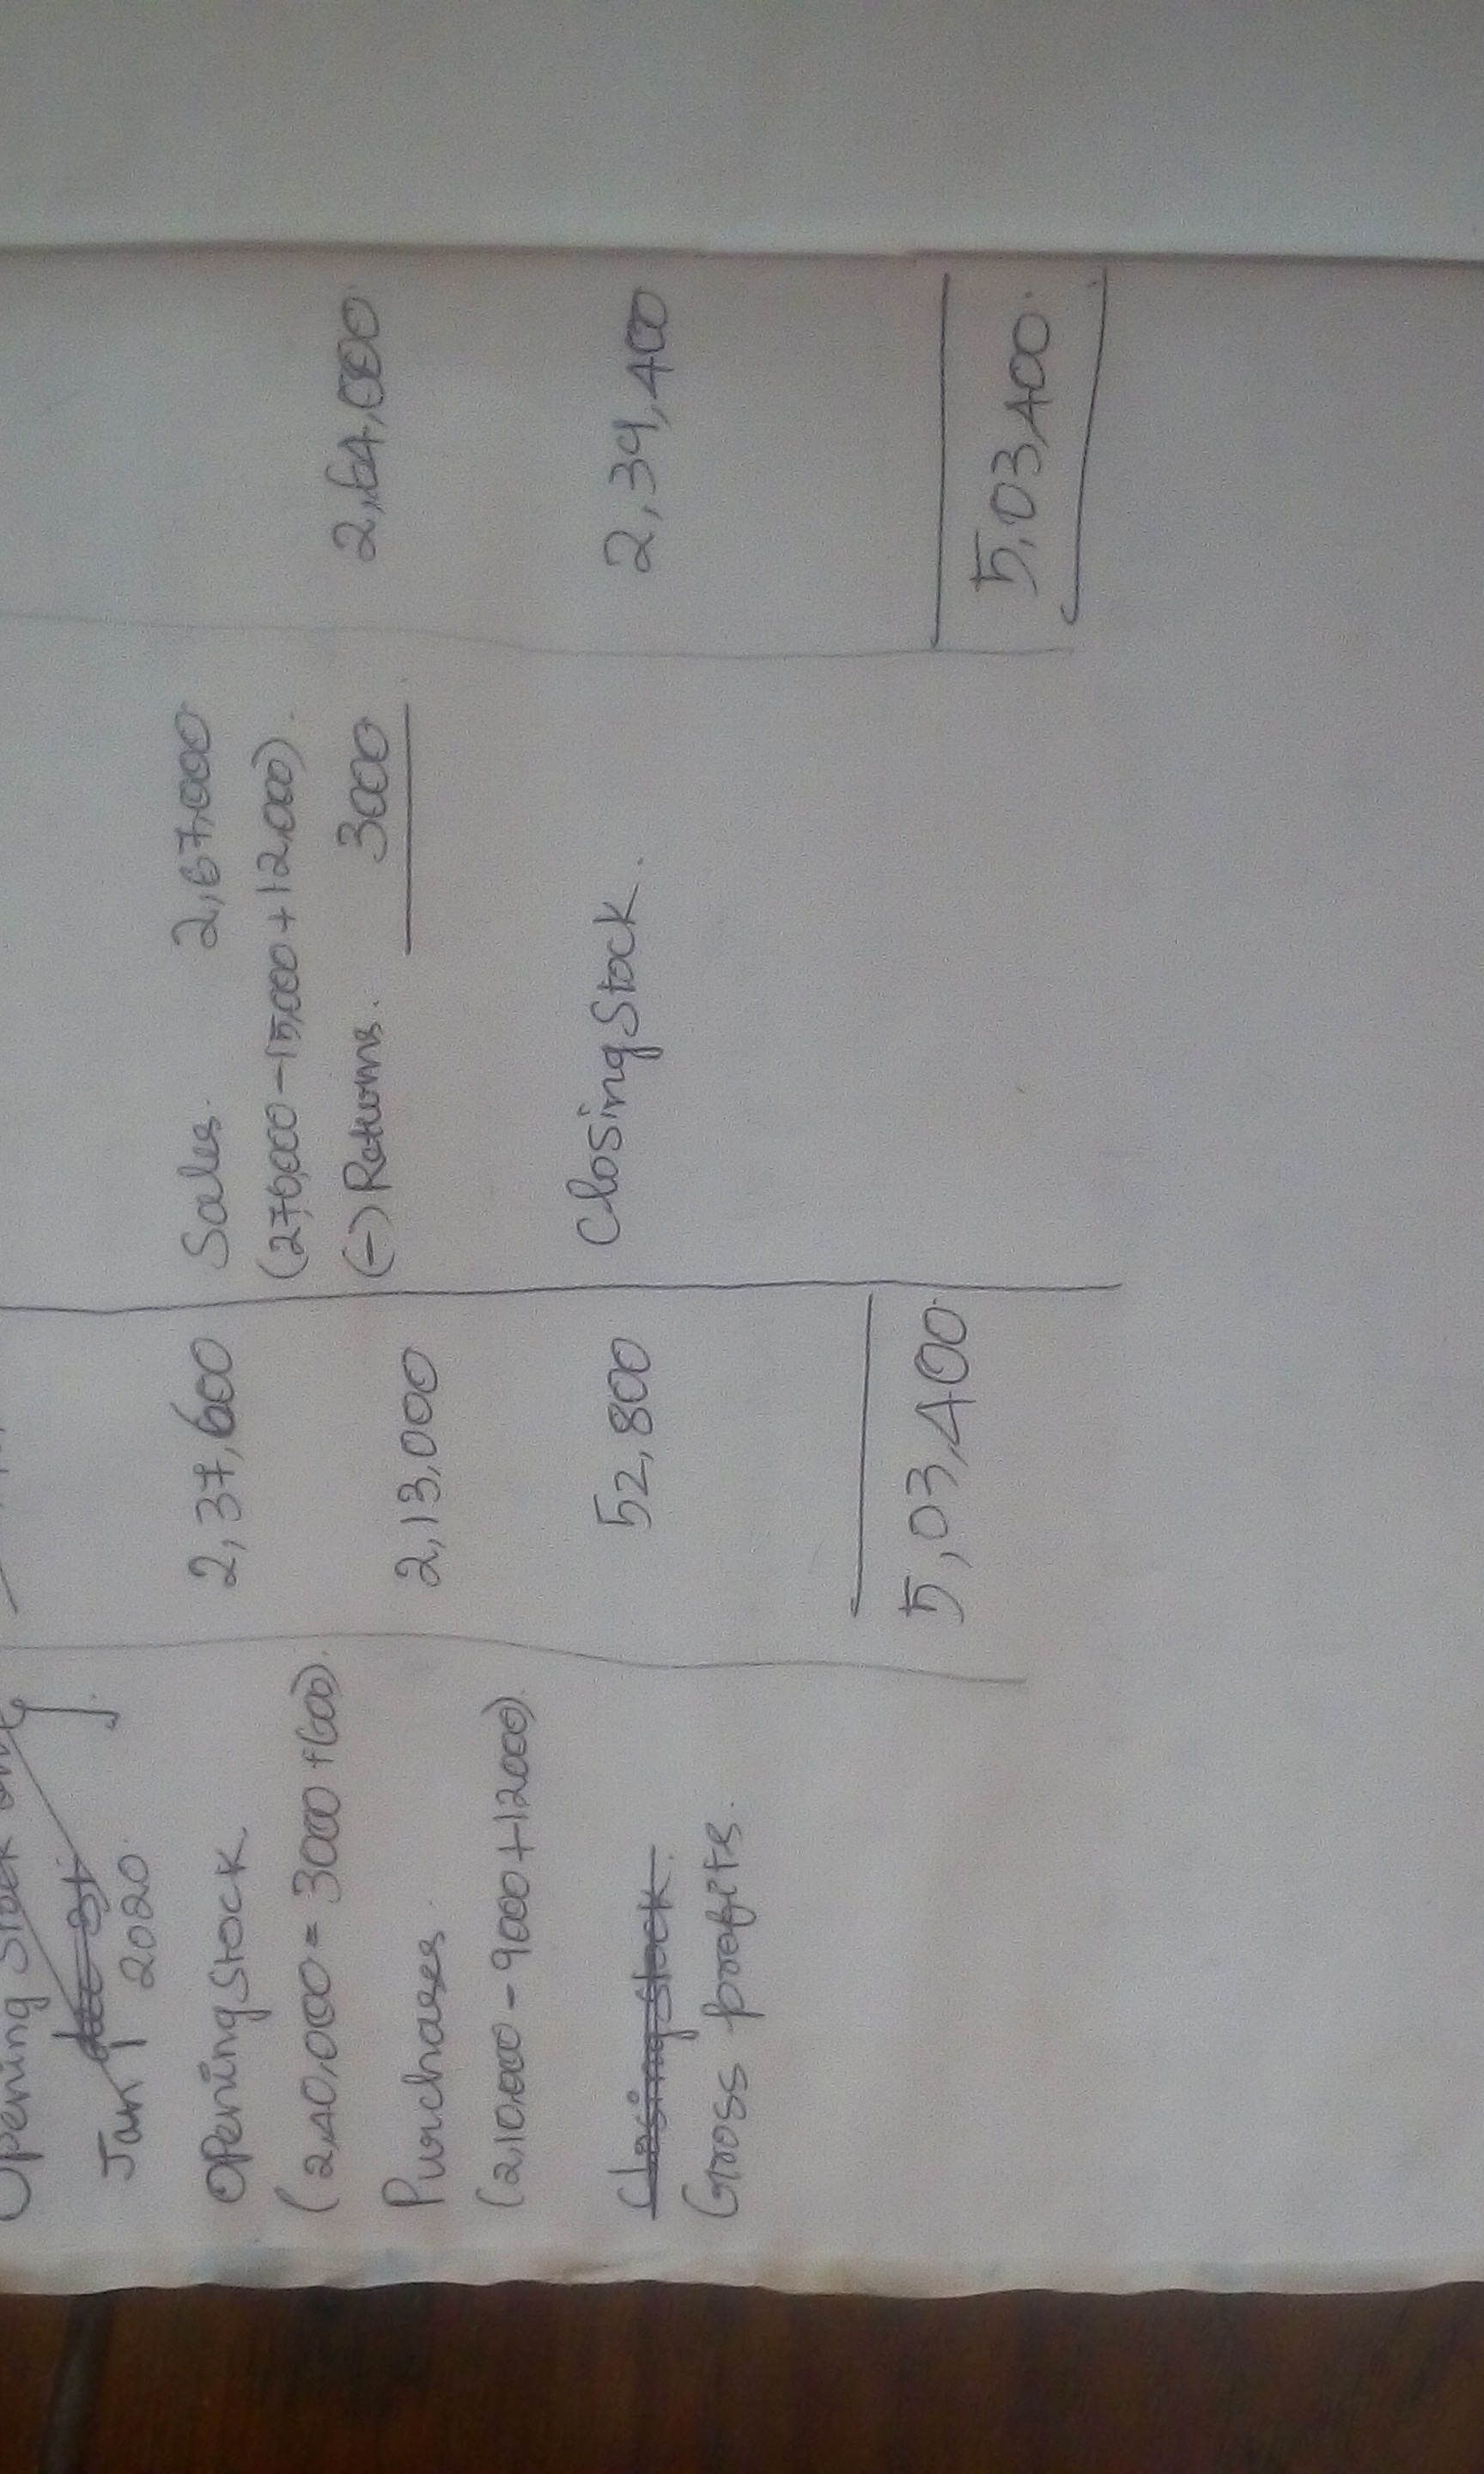 Opening Stock
Jan 2020.
Opening Stock 2,37,600 Sales. 2,67,000
(2,40,000 = 3000 + 600). (270,000 - 15,000 + 12,000).
Purchases. 2,13,000 (-) Returns. 3000 2,64,000
(2,10,000 - 9000 + 12000).
Closing Stock. 52,800 Closing Stock. 2,39,400
Gross profits.
5,03,400 5,03,400